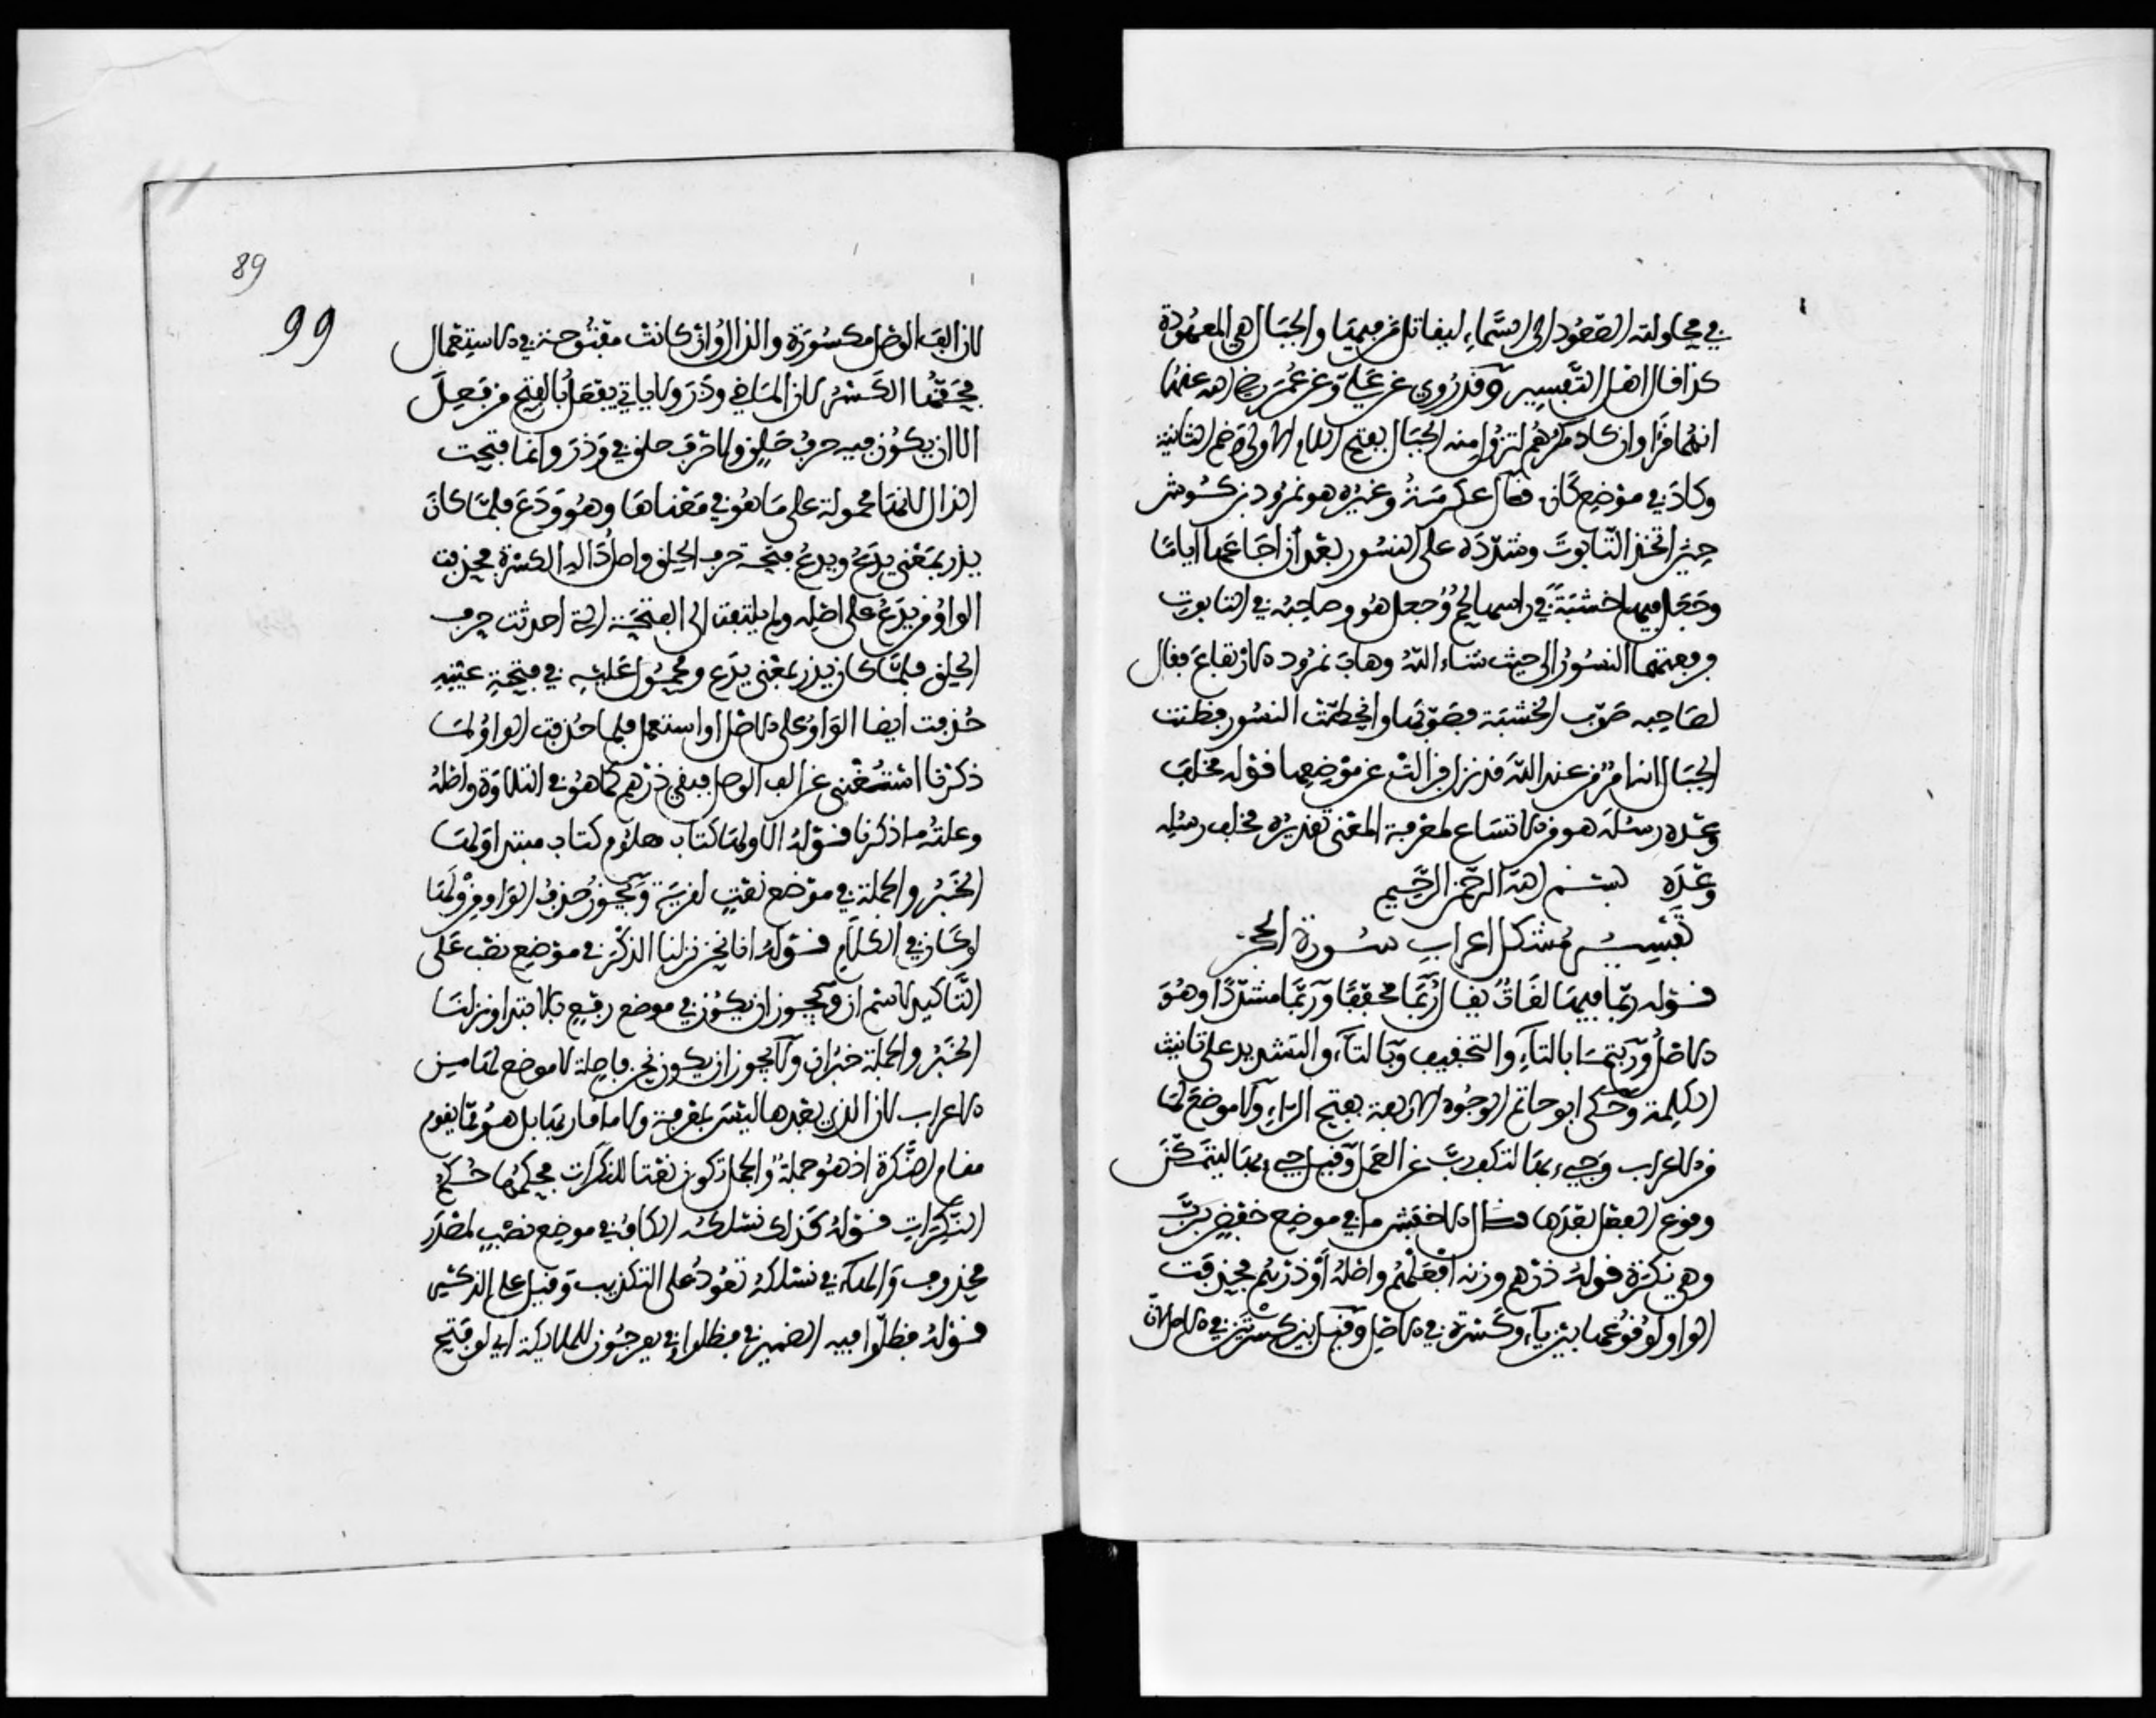 في محاولته الصعود الى السماء ليقاتل من فيها والجبال هي المعهودة
كذا قال اهل التفسير وقد روي عن علي وعن عمر رضي الله عنهما
انهما قرا وان كاد مكرهم لتزول منه الجبال بفتح اللام الاولى وضم الثانية
وكاد في موضع كان قال عكرمة وغيره هو نمرود بن كوش
حين اتخذ التابوت وشدده على النسور بعد ان اجاعها اياما
وجعل فيها خشبة في راسها لحم وجعل هو وصاحبه في التابوت
ورفعتهما النسور الى حيث شاء الله وهاب نمرود الارتفاع فقال
لصاحبه صوب الخشبة فصوبها وانحطت النسور فظنت
الجبال انه امر من عند الله قد نزل فزالت عن موضعها قوله مخلف
وعده رسله هو من الاتساع لمعرفة المعنى تقديره مخلف رسله
وعده بسم الله الرحمن الرحيم
تفسير مشكل اعراب سورة الحجر
قوله ربما فيها لغات يقال ربما مخففا وربما مشددا وهو
الاصل وربتما بالتاء والتخفيف وبالتاء والتشديد على تانيث
الكلمة وحكى ابو حاتم الوجوه الاربعة بفتح الراء ولا موضع لها
من الاعراب وجيء بما لتكف رب عن العمل وقيل جيء بها ليتمكن
وقوع الفعل بعدها وقال الاخفش ما في موضع خفض برب
وهي نكرة قوله ذرهم وزنه افعلهم واصله اوذرهم فحذفت
الواو لوقوعها بين ياء وكسرة في الاصل وقيل بين كسرتين في الاصل لان
89
99
لان الف الوصل مكسورة والذال وان كانت مفتوحة في الاستعمال
فحقها الكسر لان الماضي وذر ولا ياتي يفعل بالفتح من فعل
الا ان يكون فيه حرف حلق ولا حرف حلق في وذر وانما فتحت
الذال لانها محمولة على ما هو في معناها وهو ودع فلما كان
يذر بمعنى يدع ويدع فتحه حرف الحلق واصل داله الكسرة فحذفت
الواو من يدع على اصله ولم يلتفت الى الفتحة التي احدثت حرف
الحلق فلما كان يذر بمعنى يدع ومحمول عليه في فتحة عينه
حذفت ايضا الواو على الاصل او استعمل فلما حذفت الواو لما
ذكرنا استغنى عن الف الوصل فبقي ذرهم كما هو في التلاوة واصله
وعلته ما ذكرنا قوله الا ولها كتاب معلوم كتاب مبتدا ولها
الخبر والجملة في موضع نعت لقرية ويجوز حذف الواو من ولها
لو كان في الكلام قوله انا نحن نزلنا الذكر في موضع نصب على
التاكيد لاسم ان ويجوز ان يكون في موضع رفع بالابتدا ونزلنا
الخبر والجملة خبر ان ولا يجوز ان يكون نحن فاصلة لا موضع لها من
الاعراب لان الذي بعدها ليس بمعرفة ولا ما قاربها بل هو مما يقوم
مقام النكرة اذ هو جملة والجمل تكون نعتا للنكرات فحكمها حكم
النكرات قوله كذلك نسلكه الكاف في موضع نصب لمصدر
محذوف والهاء في نسلكه تعود على التكذيب وقيل على الذكر
قوله فظلوا فيه الضمير في فظلوا وفي يعرجون للملائكة اي لو فتح